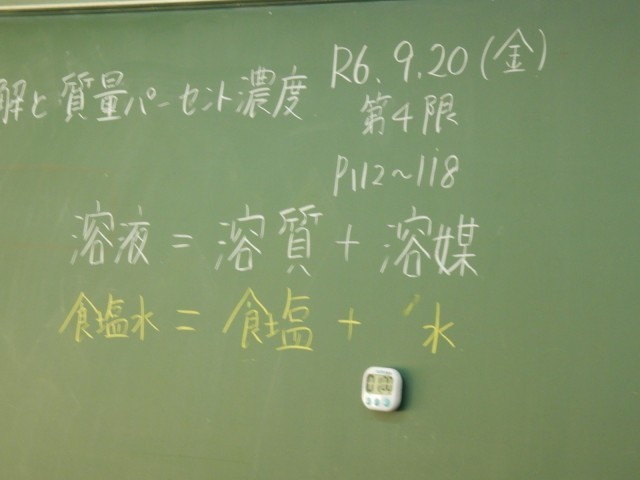 解と質量パーセント濃度
R6.9.20(金)
第4限
P112~118
溶液=溶質+溶媒
食塩水=食塩+水